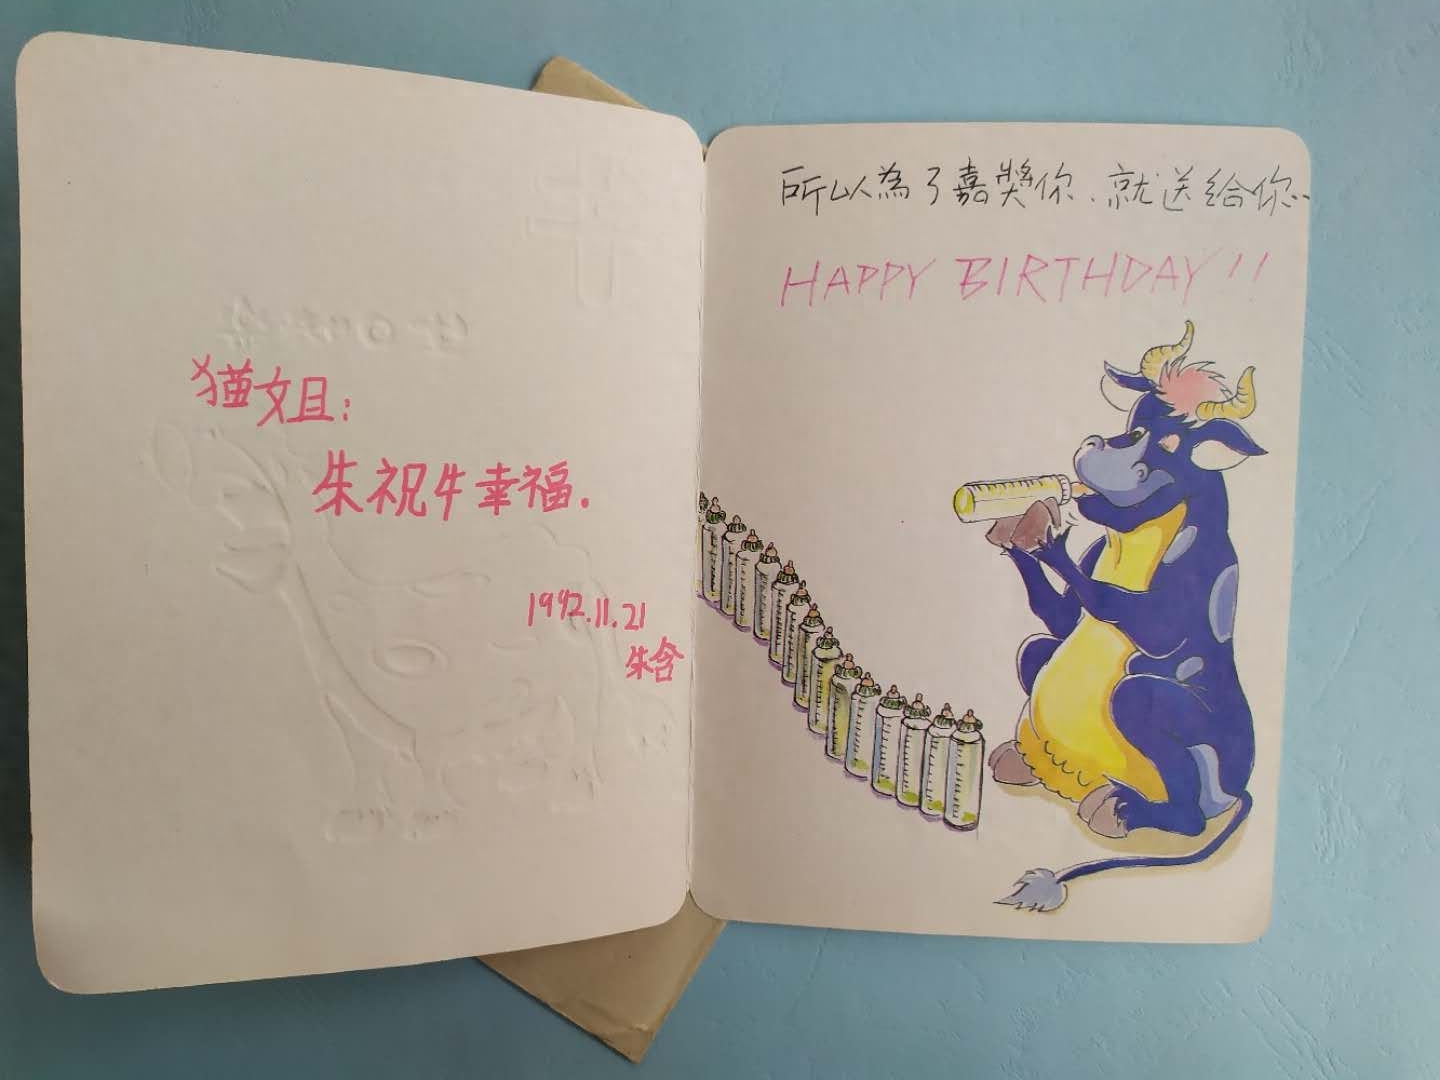 猫姐：
朱祝牛幸福.
1992.11.21
朱含
所以為了嘉獎你.就送給你..
HAPPY BIRTHDAY!!